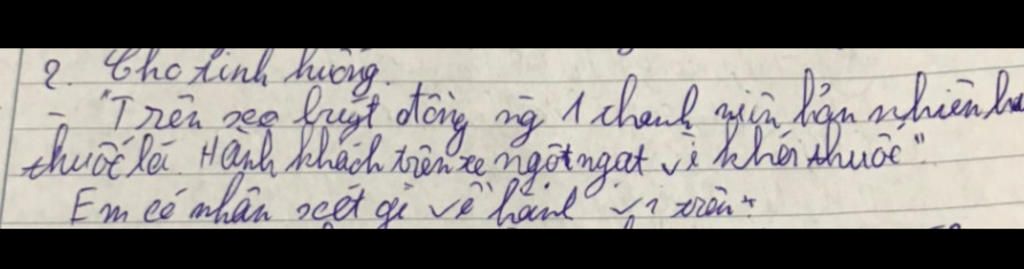 2. Cho tình huống.
- "Trên xe buýt đông ng 1 thanh niên hồn nhiên hút
thuốc lá. Hành khách trên xe ngột ngạt vì khói thuốc".
Em có nhân xét gì về hành vi trên?